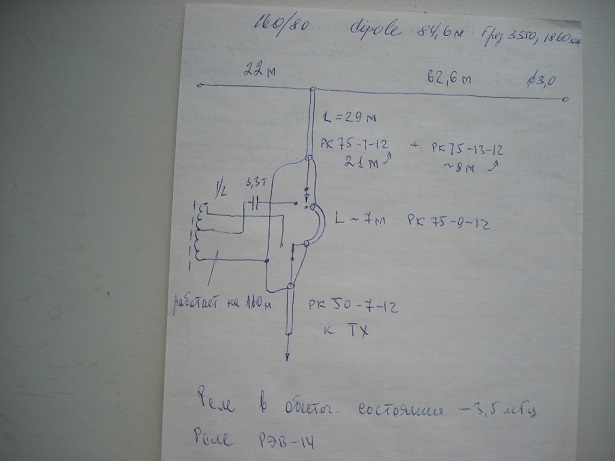 160/80 dipole 84,6м Fрез 3550, 1860 кгц
22м 62,6м ϕ3,0
L = 29м
РК 75-7-12 + РК 75-13-12
21м ~8м
1/L 3,3т
L ~ 7м РК 75-9-12
работает на 160м
РК 50-7-12
к TX
Реле в обесточ. состоянии - 3,5 мГц
Реле РЭВ-14